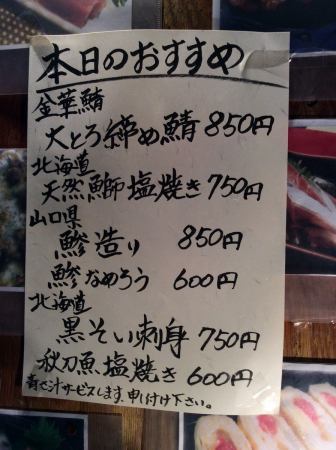 本日のおすすめ
金華鯖
大とろ締め鯖 850円
北海道
天然鰤塩焼き 750円
山口県
鯵造り 850円
鯵なめろう 600円
北海道
黒そい刺身 750円
秋刀魚塩焼き 600円
青さ汁サービスします、申し付け下さい。